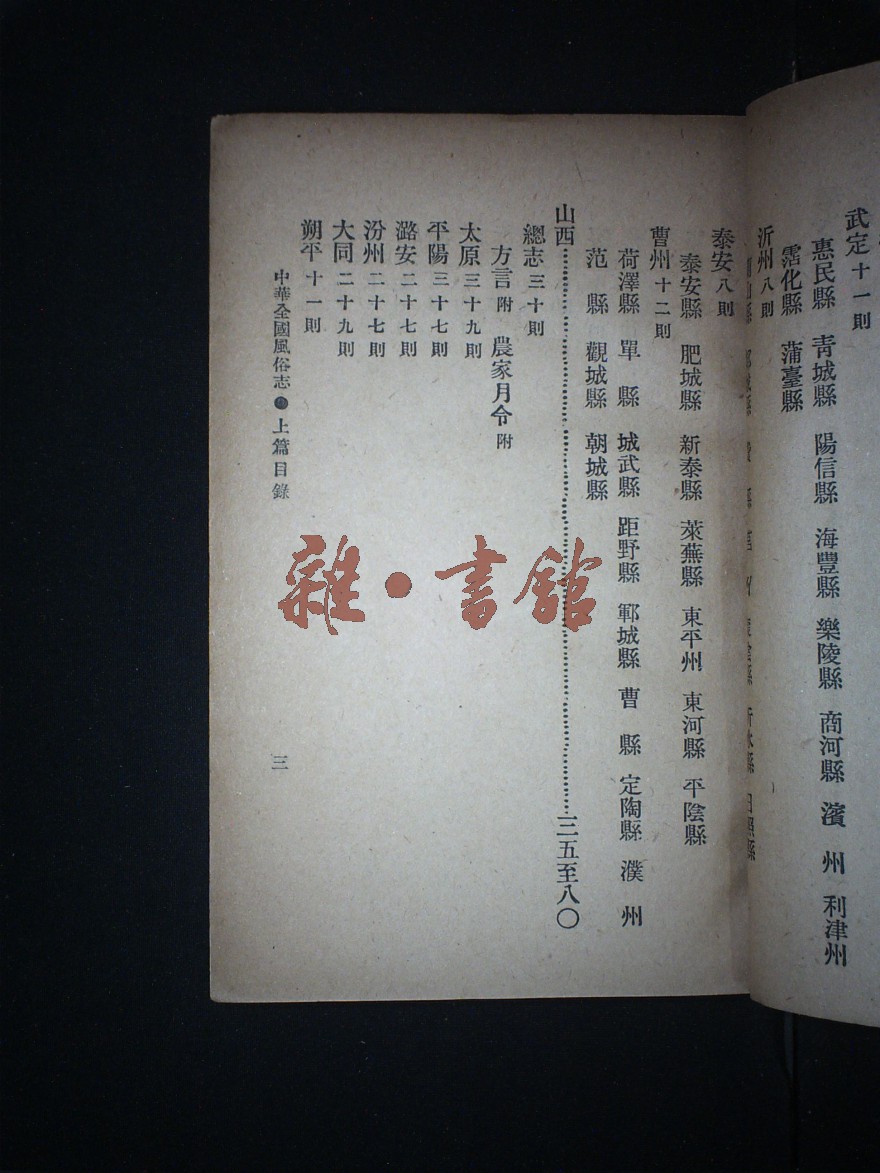 武定 十一則
惠民縣 青城縣 陽信縣 海豐縣 樂陵縣 商河縣 濱 州 利津州
霑化縣 蒲臺縣
沂州 八則
泰安 八則
泰安縣 肥城縣 新泰縣 萊蕪縣 東平州 東河縣 平陰縣
曹州 十二則
荷澤縣 單 縣 城武縣 距野縣 鄆城縣 曹 縣 定陶縣 濮 州
范 縣 觀城縣 朝城縣
山西……………………………………三五至八〇
總志 三十則
方言 附 農家月令 附
太原 三十九則
平陽 三十七則
潞安 二十七則
汾州 二十七則
大同 二十九則
朔平 十一則
中華全國風俗志 ● 上篇目錄
三
雜·書館